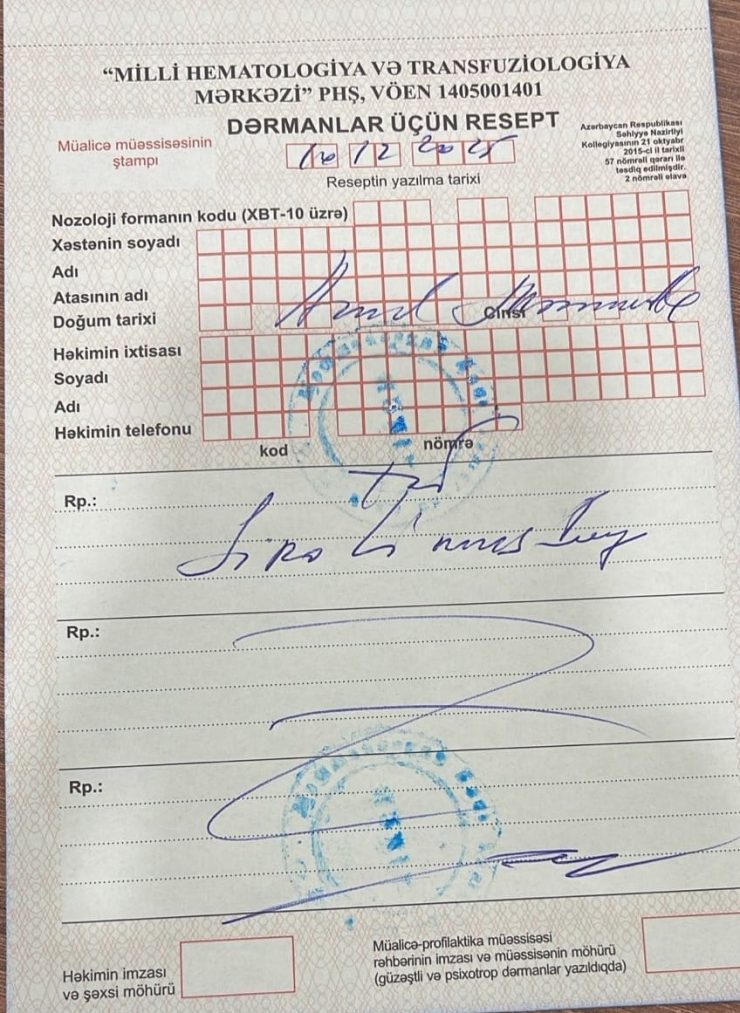 “MİLLİ HEMATOLOGİYA VƏ TRANSFUZİOLOGİYA
MƏRKƏZİ” PHŞ, VÖEN 1405001401
DƏRMANLAR ÜÇÜN RESEPT
Müalicə müəssisəsinin
ştampı
Azərbaycan Respublikası
Səhiyyə Nazirliyi
Kollegiyasının 21 oktyabr
2015-ci il tarixli
57 nömrəli qərarı ilə
təsdiq edilmişdir.
2 nömrəli əlavə
10 12 2025
Reseptin yazılma tarixi
Nozoloji formanın kodu (XBT-10 üzrə)
Xəstənin soyadı
Adı
Atasının adı
Doğum tarixi
Cinsi
Həkimin ixtisası
Soyadı
Adı
Həkimin telefonu
kod
nömrə
Rp.:
Rp.:
Rp.:
Həkimin imzası
və şəxsi möhürü
Müalicə-profilaktika müəssisəsi
rəhbərinin imzası və müəssisənin möhürü
(güzəştli və psixotrop dərmanlar yazıldıqda)